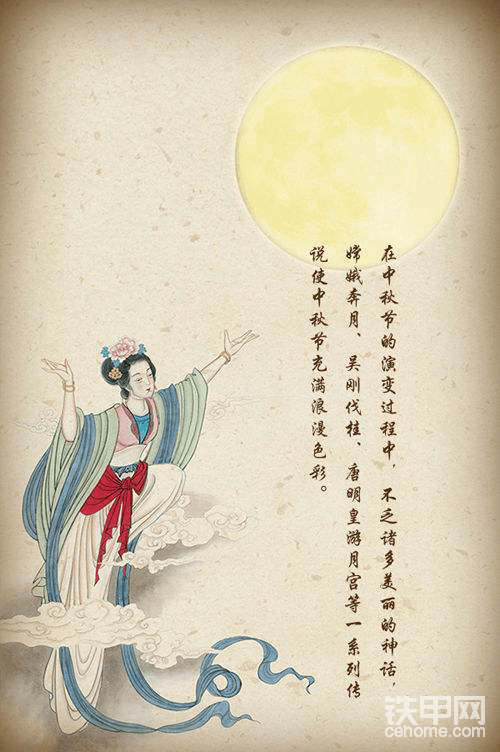 在中秋节的演变过程中，不乏诸多美丽的神话，
嫦娥奔月、吴刚伐桂、唐明皇游月宫等一系列传
说使中秋节充满浪漫色彩。
铁甲网
cehome.com